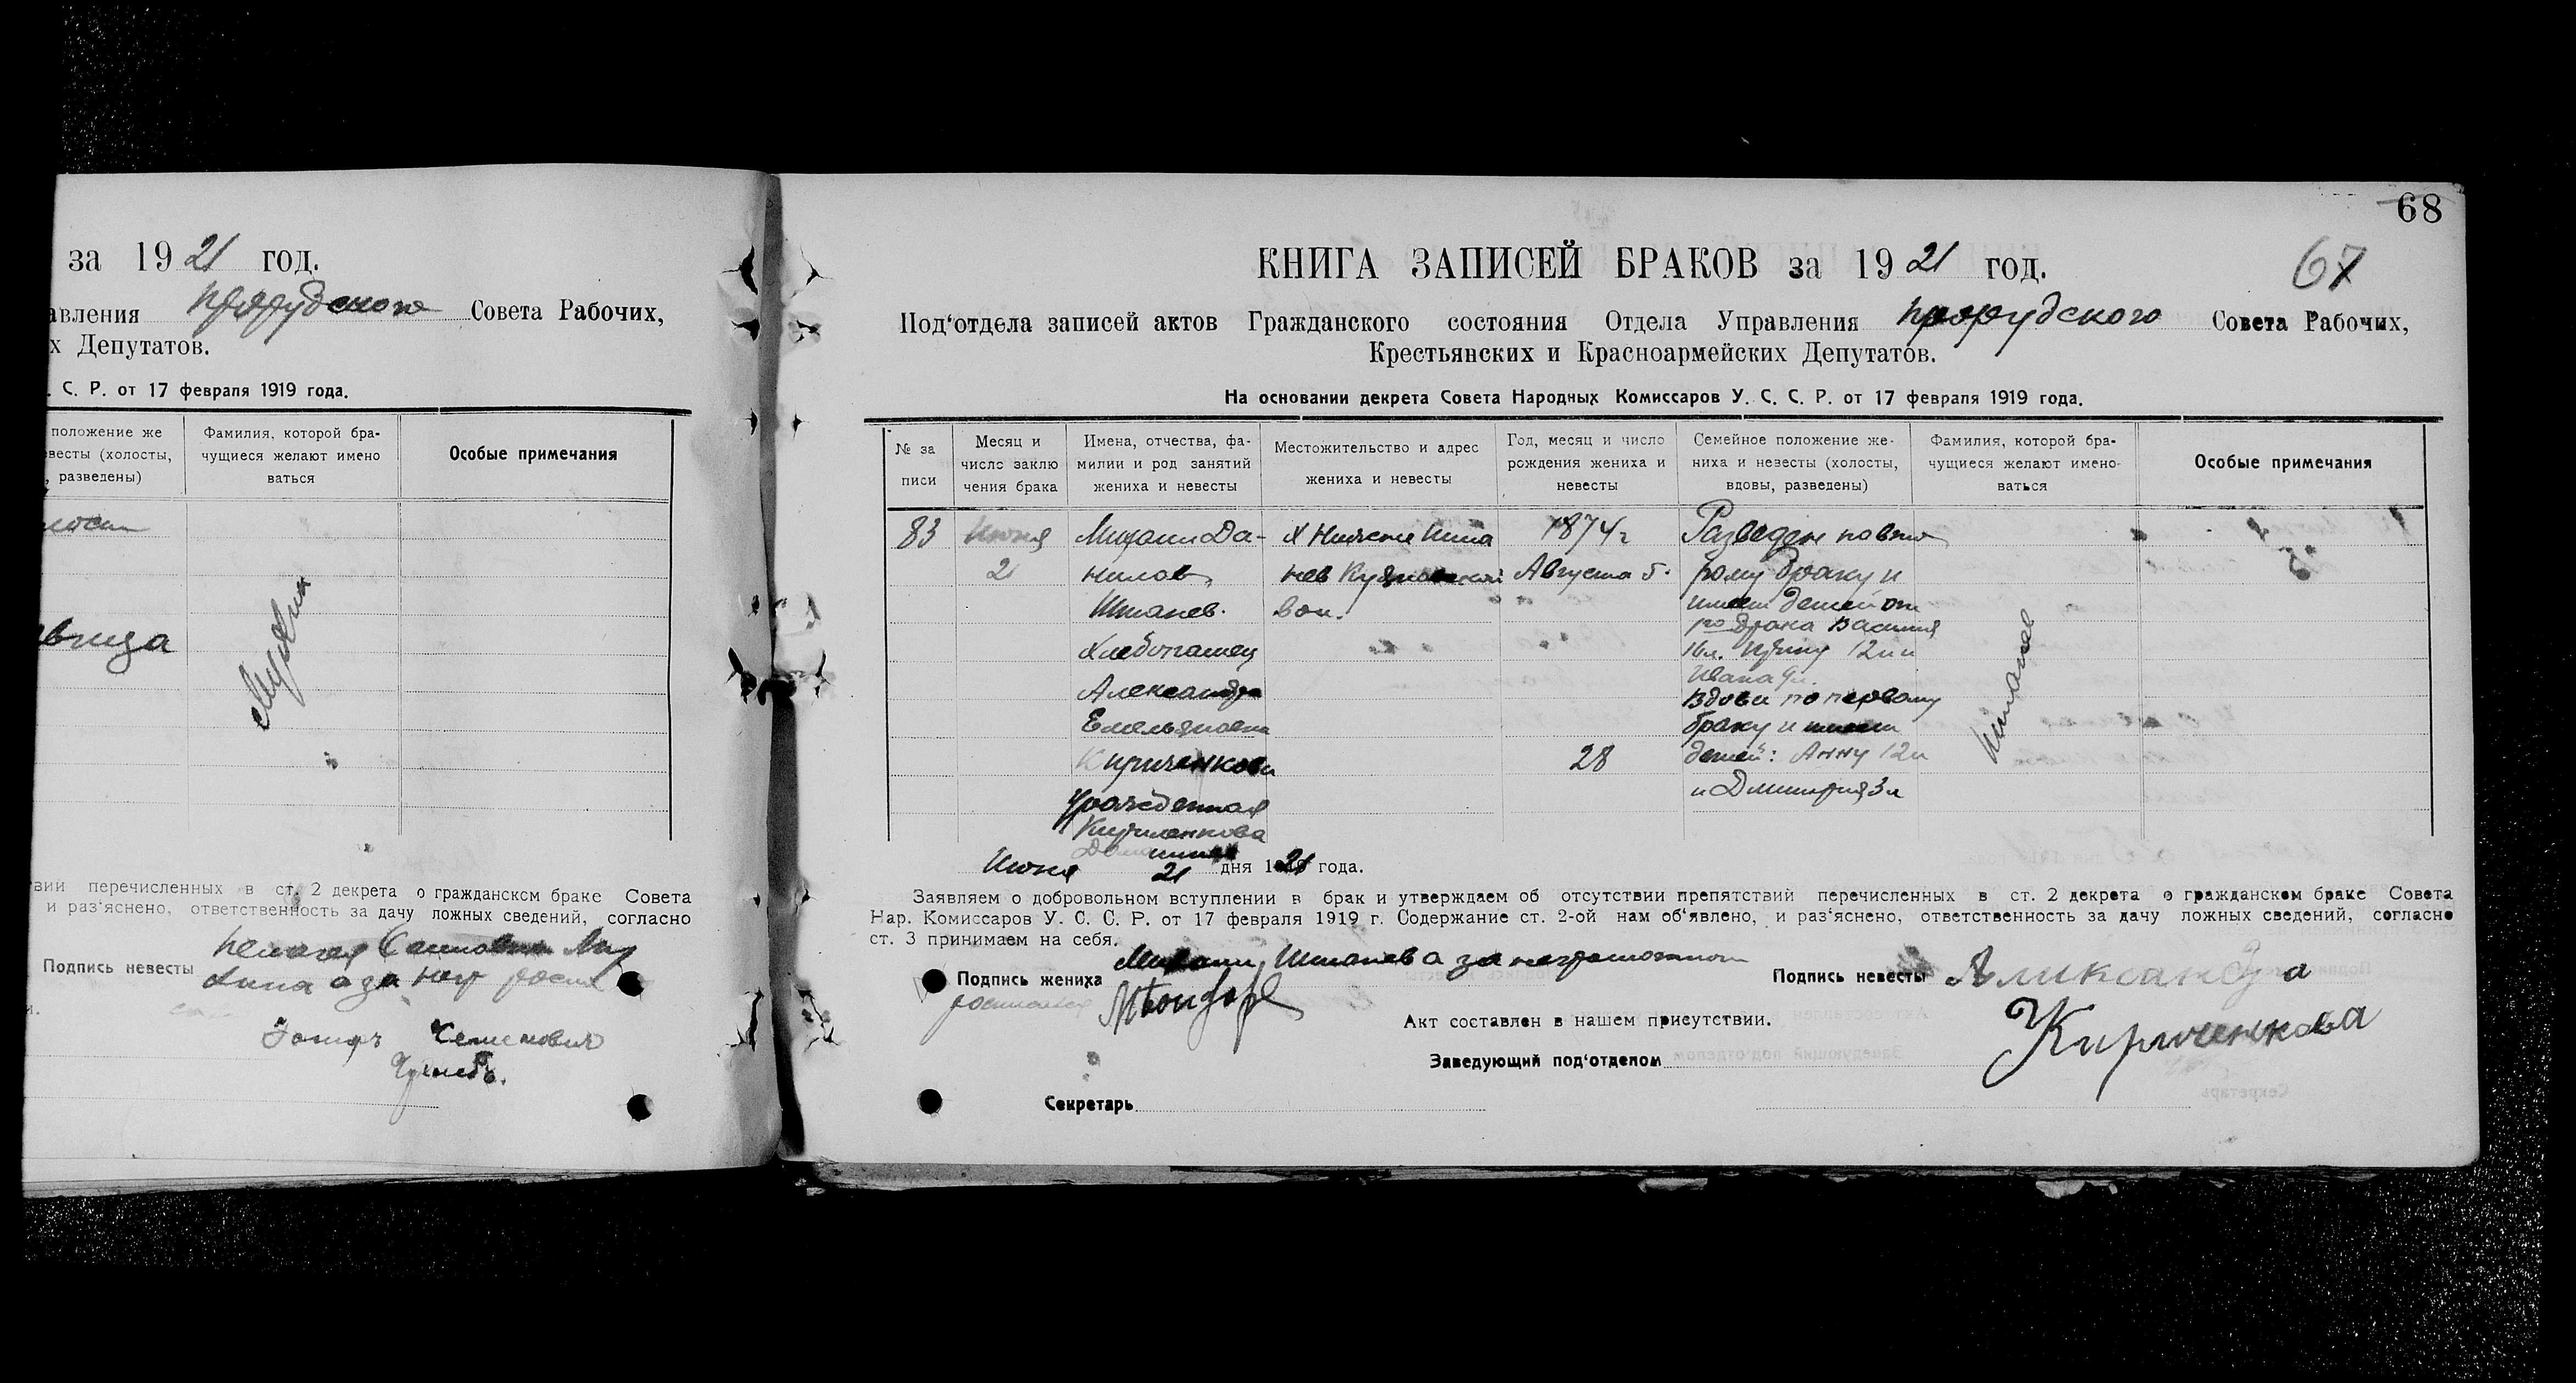 за 1921 год.
авления Совета Рабочих,
х Депутатов.
. С. Р. от 17 февраля 1919 года.
положение же
евесты (холосты,
, разведены)
Фамилия, которой бра-
чущиеся желают имено
ваться
Особые примечания
вица
вий перечисленных в ст. 2 декрета о гражданском браке Совета
и раз'яснено, ответственность за дачу ложных сведений, согласно
Подпись невесты
а за неё
Семенович
68
67
КНИГА ЗАПИСЕЙ БРАКОВ за 1921 год.
Под'отдела записей актов Гражданского состояния Отдела Управления Совета Рабочих,
Крестьянских и Красноармейских Депутатов.
На основании декрета Совета Народных Комиссаров У. С. С. Р. от 17 февраля 1919 года.
№ за
писи
Месяц и
число заклю
чения брака
Имена, отчества, фа-
милии и род занятий
жениха и невесты
Местожительство и адрес
жениха и невесты
Год, месяц и число
рождения жениха и
невесты
Семейное положение же-
ниха и невесты (холосты,
вдовы, разведены)
Фамилия, которой бра-
чущиеся желают имено-
ваться
Особые примечания
83
Июня
21
Михаил Да-
нилов
Шпанев.
Хлебопашец
Александра
Емельяновна
Кириченкова
Урожденная
Кириченкова
Домашняя
Вол.
1874 г
Августа 5.
28
Разведен по вто
рому браку и
имеет детей от
1го брака Василия
16 л. 12 л и
Ивана 9 л.
Вдова по первому
браку и имеет
детей: Анну 12 л
и Дмитрия 3 л
Шпанев
Июня 21 дня 1921 года.
Заявляем о добровольном вступлении в брак и утверждаем об отсутствии препятствий перечисленных в ст. 2 декрета о гражданском браке Совета
Нар. Комиссаров У. С. С. Р. от 17 февраля 1919 г. Содержание ст. 2-ой нам об'явлено, и раз'яснено, ответственность за дачу ложных сведений, согласно
ст. 3 принимаем на себя.
Подпись жениха Михаил Шпанев а за неграмотного
росписался
Подпись невесты Аликсандра
Кириченкова
Акт составлен в нашем присутствии.
Заведующий под'отделом
Секретарь